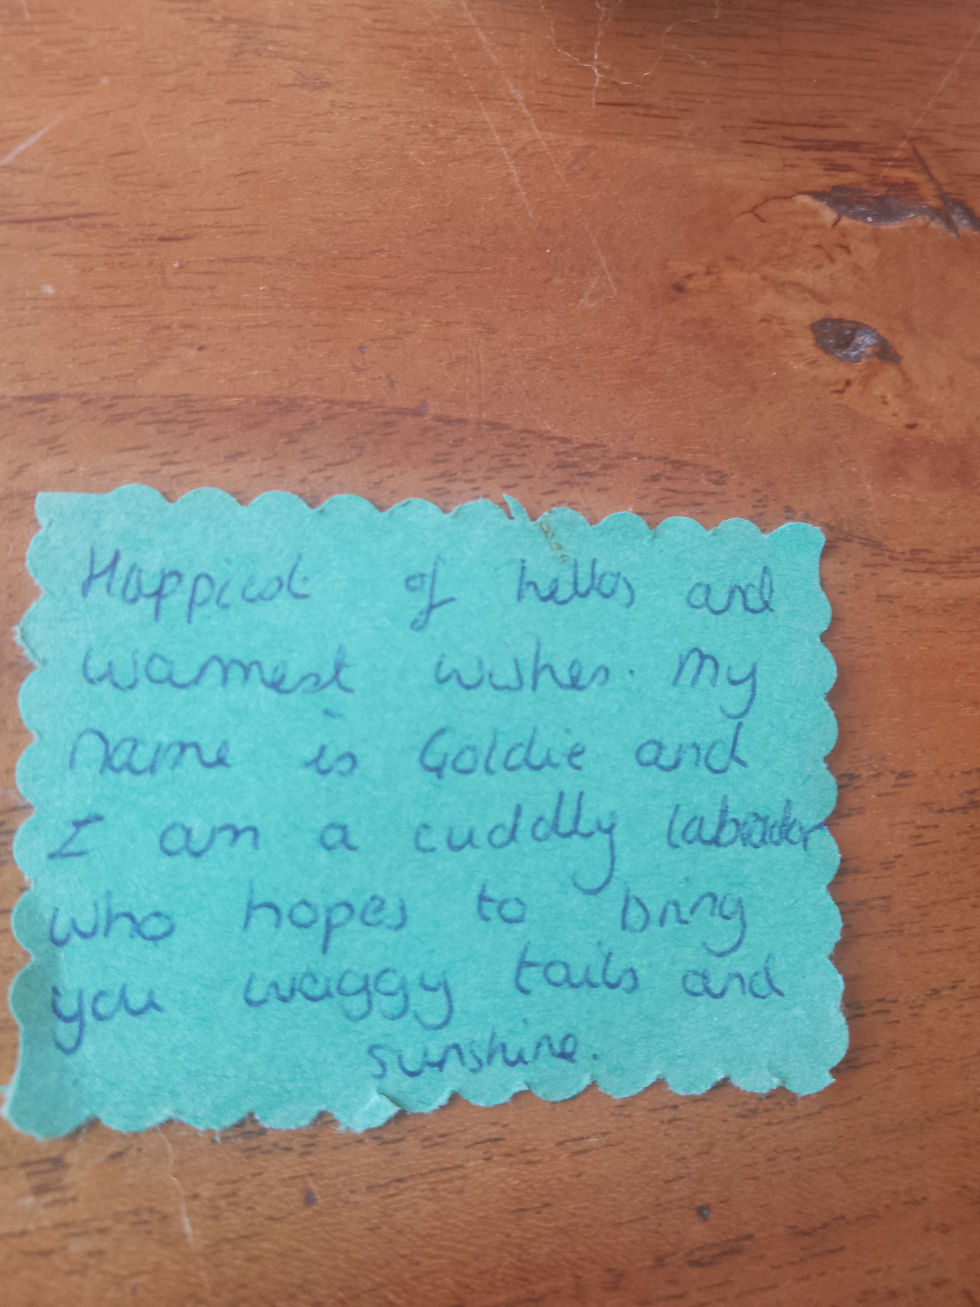 Happiest of hellos and
warmest wishes. My
name is Goldie and
I am a cuddly labrador
who hopes to bring
you waggy tails and
sunshine.